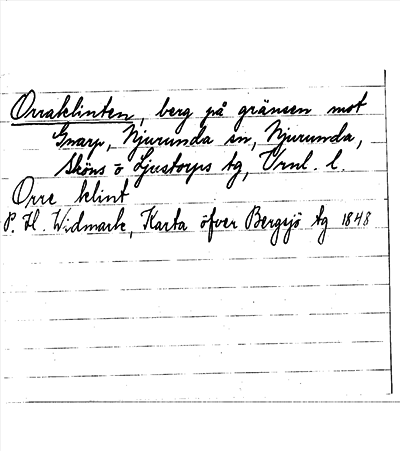 Orraklinten, berg på gränsen mot
Gnarp, Njurunda sn, Njurunda,
Sköns o Ljustorps tg, Vrnl. l.
Orre klint
P. H. Widmark, Karta öfver Bergsjö tg 1848